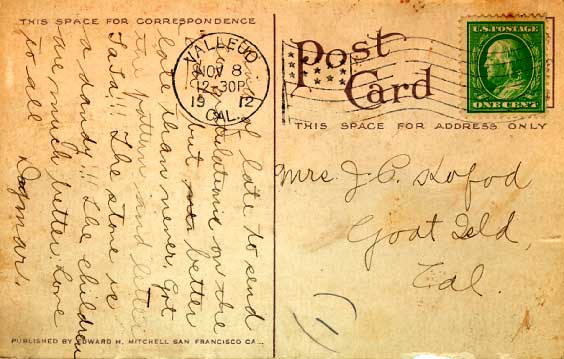 THIS SPACE FOR CORRESPONDENCE
of late to send
congratulations on the
but better
late than never. Got
the pattern and letter
TaTa!!! The stone is
a dandy!! The children
are much better. Love
to all Dagmar.
VALLEJO,
NOV 8
12-30P
1912
CAL.
Post
Card
U.S. POSTAGE
ONE CENT
THIS SPACE FOR ADDRESS ONLY
Mrs. J. P. Kofod
Goat Isld,
Cal.
(1)
PUBLISHED BY EDWARD H. MITCHELL SAN FRANCISCO CA...